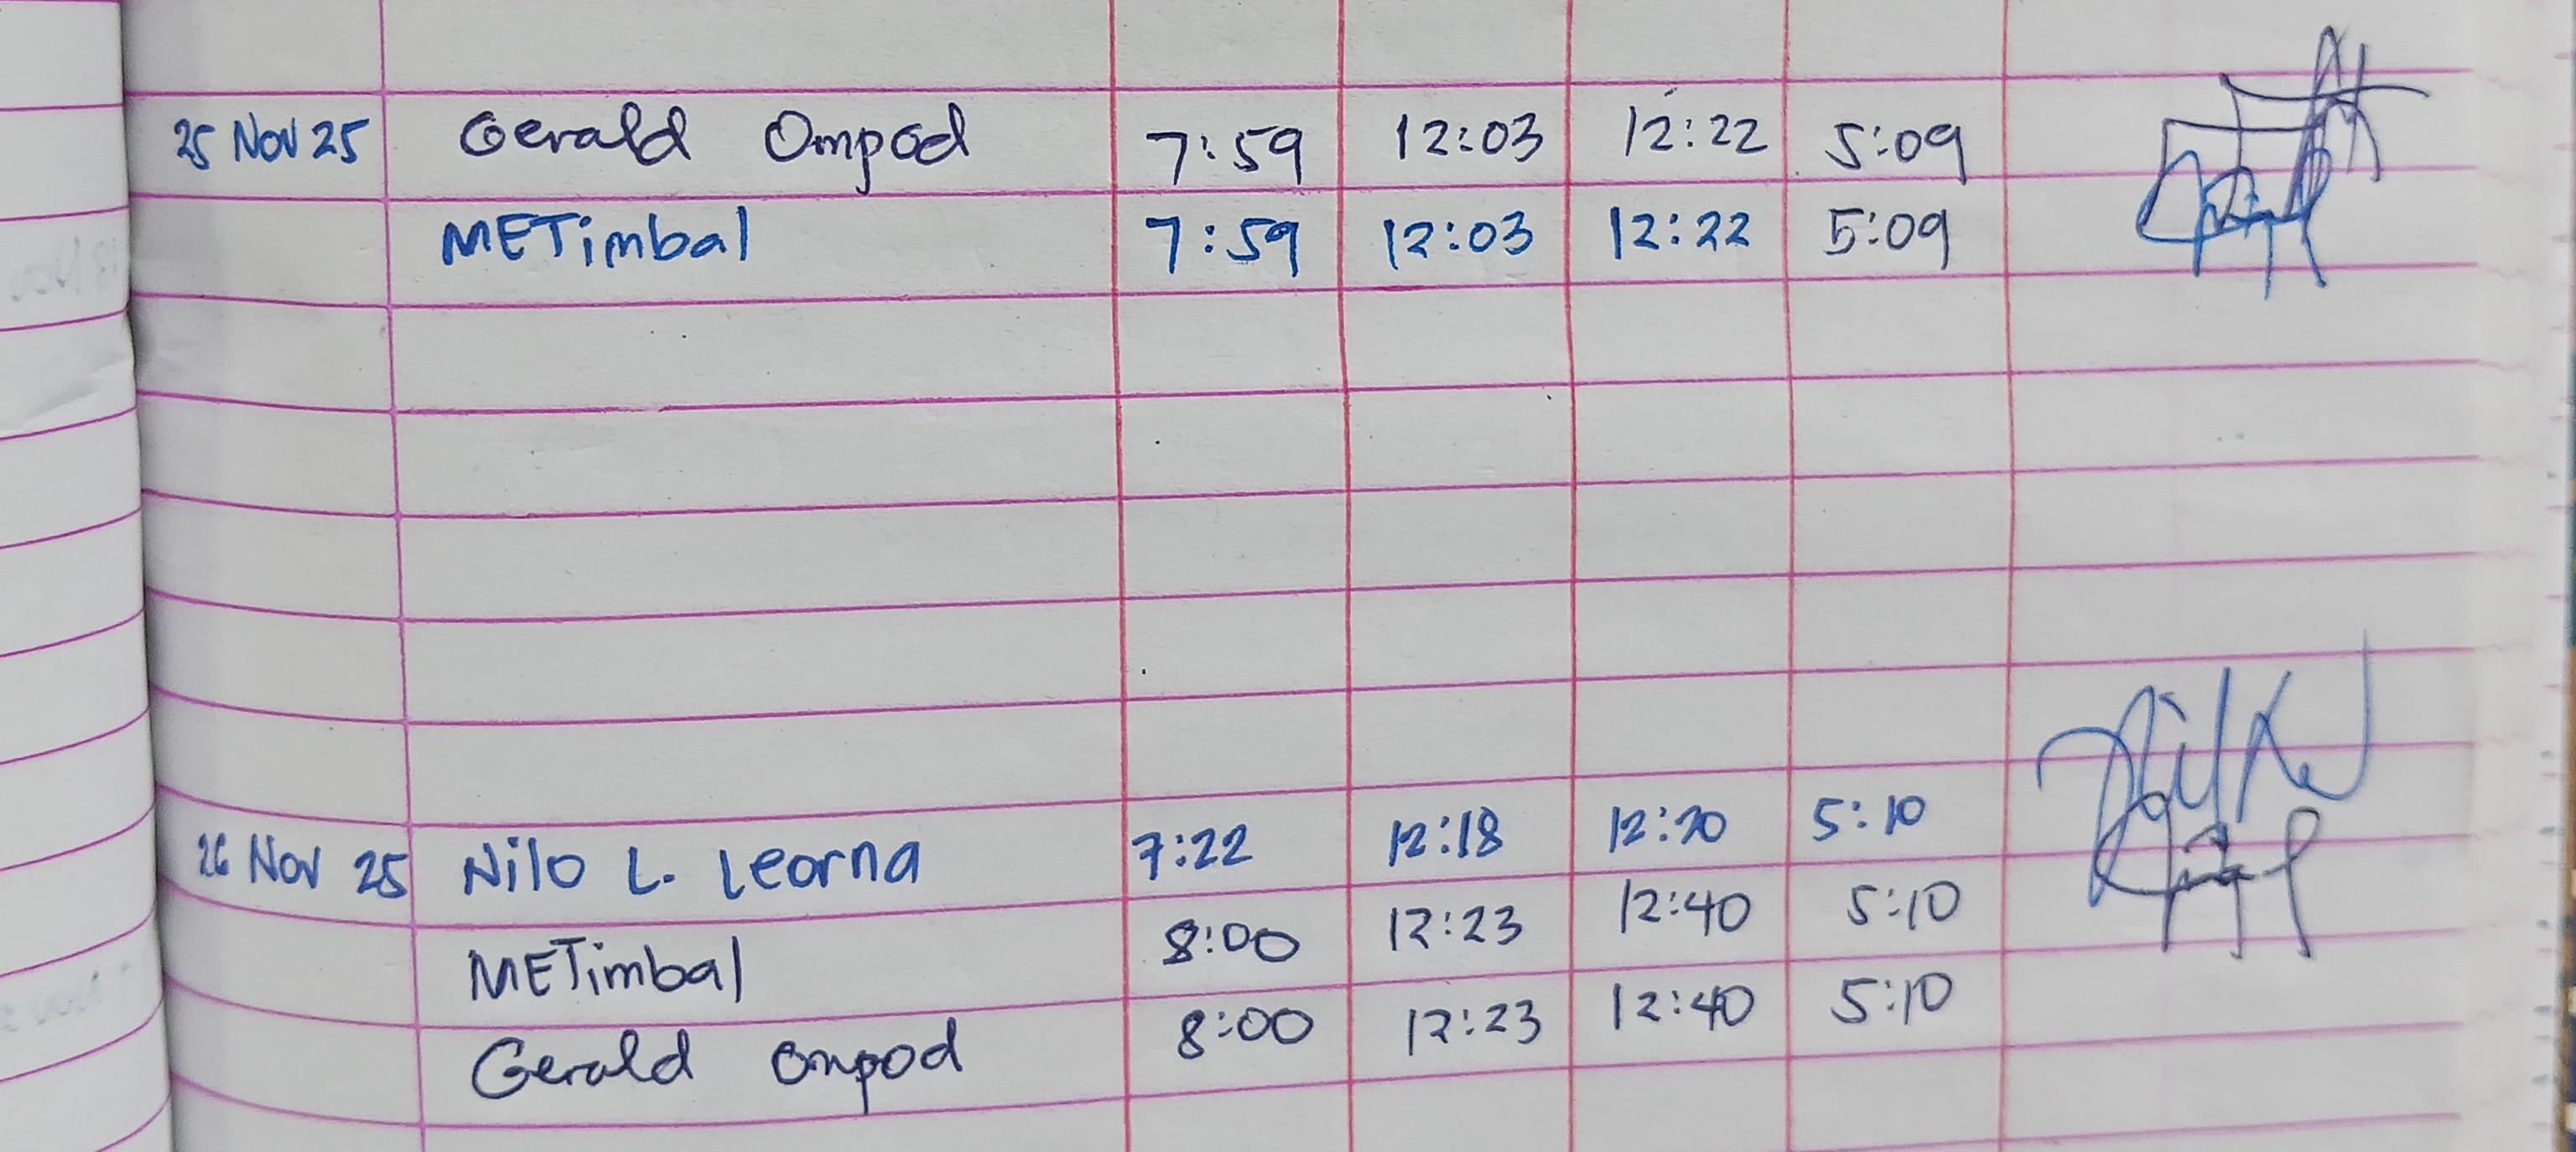 25 Nov 25 Gerald Ompod 7:59 12:03 12:22 5:09
METimbal 7:59 12:03 12:22 5:09
26 Nov 25 Nilo L. Leorna 7:22 12:18 12:20 5:10
METimbal 8:00 12:23 12:40 5:10
Gerald Ompod 8:00 12:23 12:40 5:10